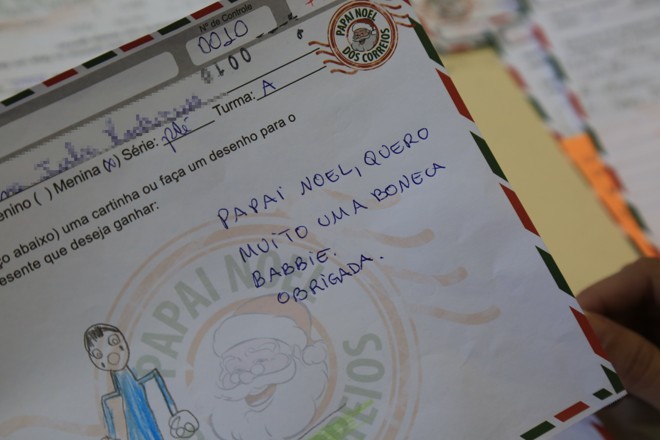 Nº de Controle
0010
0100
PAPAI NOEL
DOS CORREIOS
enino ( ) Menina (x) Série: pré Turma: A
ço abaixo) uma cartinha ou faça um desenho para o
esente que deseja ganhar:
PAPAI NOEL, QUERO
MUITO UMA BONECA
BABBIE.
OBRIGADA.
PAPAI NOEL
CORREIOS